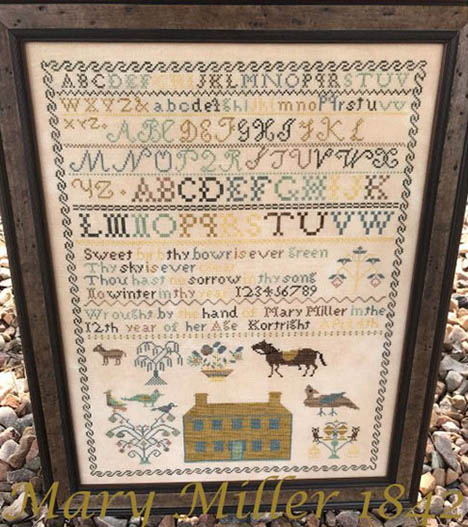 ABCDEFGHIJKLMNOPQRSTUV
WXYZ&abcdefghijklmnopqrstuv
xyz·ABCDEFGHIJKL
MNOPQRSTUVWX
YZ·ABCDEFGHIJK
LMNOPQRSTUVW
Sweet bird thy bowr is ever green
Thy sky is ever clear
Thou hast no sorrow in thy song
No winter in thy year 123456789
Wrought by the hand of Mary Miller in the
12th year of her Age Kortright
Mary Miller 1842